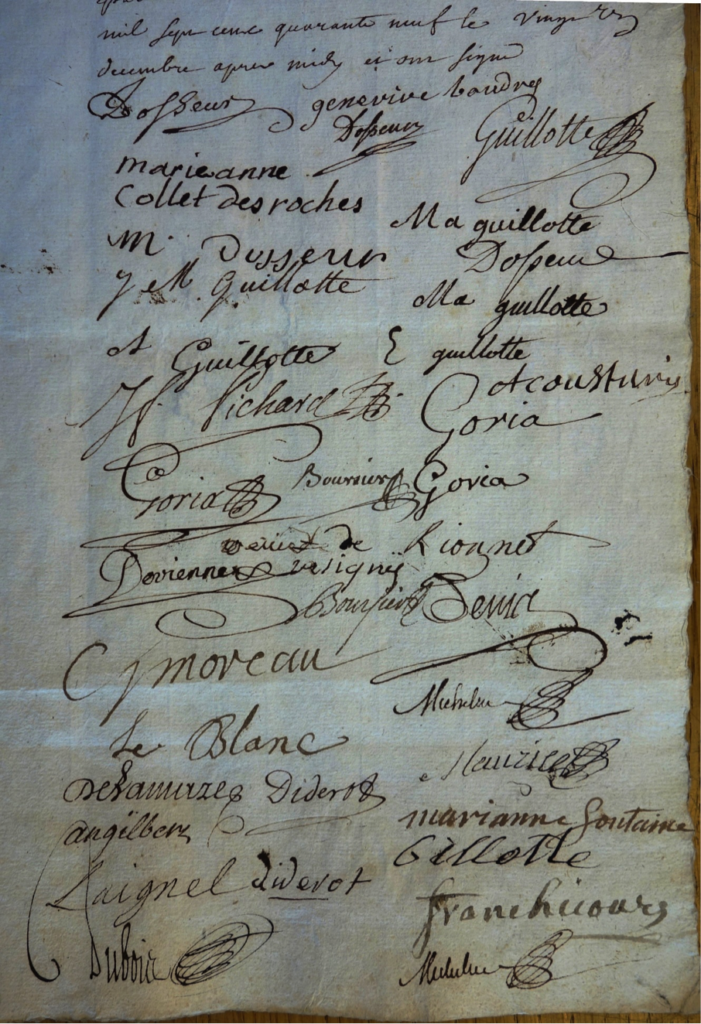 mil sept cens quarante neuf le vingt
decembre apres midy et ont signé
Dosseur genevive baudry
Dosseur Guillotte
marie anne
Collet desroches
Ma guillotte
m. Dusseur Dosseur
J e M. Guillotte Ma guillotte
A Guillotte E guillotte
Jf. Pichard A cousturis
Goria
Goria Boursier Goria
de Rionnet
Devienne resigny
Boursier Denis
C J moreau
Michelin
Le Blanc Maurice
Delamarre Diderot
angilbert marianne fontaine
Gillotte
Laignel diderot
franchicourt
Dubois Michelin